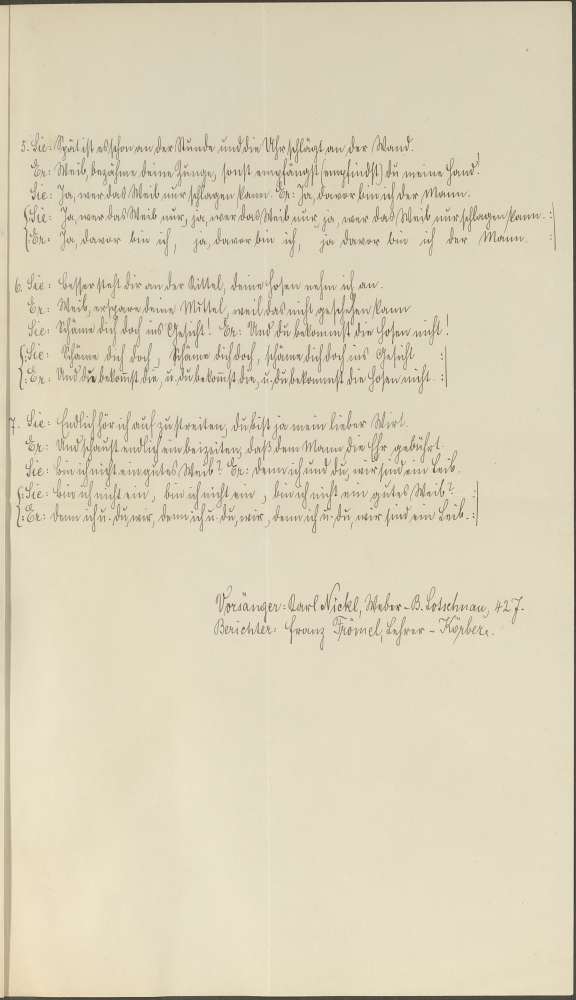 5. Sie: Spät ist es schon an der Stunde und die Uhr schlägt an der Wand.
Er: Weib, bezähme deine Zunge, sonst empfängst (empfindst) du meine Hand!
Sie: Ja, wer das Weib nur schlagen kann. Er: Ja, davor bin ich der Mann.
{Sie: Ja, wer das Weib nur, ja, wer das Weib nur, ja, wer das Weib nur schlagen kann. :|
{:Er: Ja, davor bin ich, ja, davor bin ich, ja davor bin ich der Mann. :|
6. Sie: Besser steht dir an der Kittel, deine Hosen nehm ich an.
Er: Weib, erspare deine Mittel, weil das nicht geschehen kann
Sie: Schäme dich doch ins Gesicht! Er: Und du bekommst die Hosen nicht!
{:Sie: Schäme dich doch, schäme dich doch, schäme dich doch ins Gesicht :|
{:Er: Und du bekomst die, u. du bekomst die, u. du bekommst die Hosen nicht. :|
7. Sie: Endlich hör ich auf zu streiten, du bist ja mein lieber Wirt.
Er: Und schaust endlich ein beizeiten, daß dem Mann die Ehr gebührt.
Sie: Bin ich nicht ein gutes Weib? Er: Denn ich und du, wir sind ein Leib.
{:Sie: Bin ich nicht ein, bin ich nicht ein, bin ich nicht ein gutes Weib? :|
{:Er: Denn ich u. du, wir, denn ich u. du, wir, denn ich u. du, wir sind ein Leib. :|
Vorsänger: Karl Nickl, Weber - B. Lotschnau, 42 J.
Berichter: Franz Frömel, Lehrer - Körber.